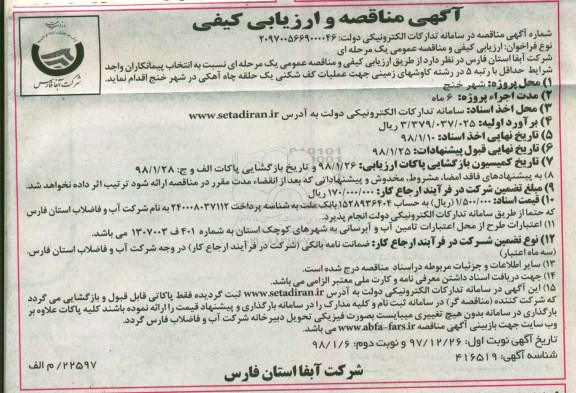 آگهی مناقصه و ارزیابی کیفی
شماره آگهی مناقصه در سامانه تدارکات الکترونیکی دولت: ۲۰۹۷۰۰۵۶۶۹۰۰۰۰۴۶
نوع فراخوان: ارزیابی کیفی و مناقصه عمومی یک مرحله ای
شرکت آبفا استان فارس در نظر دارد از طریق ارزیابی کیفی و مناقصه عمومی یک مرحله ای نسبت به انتخاب پیمانکاران واجد
شرایط حداقل با رتبه ۵ در رشته کاوشهای زمینی جهت عملیات کف شکنی یک حلقه چاه آهکی در شهر خنج اقدام نماید.
۱) محل پروژه: شهر خنج
۲) مدت اجراء پروژه: ۶ ماه
۳) محل اخذ اسناد: سامانه تدارکات الکترونیکی دولت به آدرس www.setadiran.ir
۴) برآورد اولیه: ۳/۳۷۹/۰۳۷/۰۲۵ ریال
۵) تاریخ نهایی اخذ اسناد: ۹۸/۱/۱۰
۶) تاریخ نهایی قبول پیشنهادات: ۹۸/۱/۲۵
۷) تاریخ کمیسیون بازگشایی پاکات ارزیابی: ۹۸/۱/۲۶ و تاریخ بازگشایی پاکات الف و ج: ۹۸/۱/۲۸
۸) به پیشنهادهای فاقد امضاء، مشروط، مخدوش و پیشنهاداتی که بعد از انقضاء مدت مقرر در مناقصه ارائه شود ترتیب اثر داده نخواهد شد.
۹) مبلغ تضمین شرکت در فرآیند ارجاع کار: ۱۷۰/۰۰۰/۰۰۰ ریال
۱۰) قیمت اسناد: ۱/۵۰۰/۰۰۰ (ریال) به حساب ۱۵۲۸۹۳۶۴۰۴ بانک ملت به شناسه پرداخت ۲۴۰۰۰۸۰۳۷۱۱۲ به نام شرکت آب و فاضلاب استان فارس
که حتما از طریق سامانه تدارکات الکترونیکی دولت انجام پذیرد.
۱۱) اعتبارات طرح از محل اعتبارات تامین آب و آبرسانی به شهرهای کوچک استان به شماره ۴۰۱ ف ۱۳۰۷۰۰۳ می باشد.
۱۲) نوع تضمین شرکت در فرآیند ارجاع کار: ضمانت نامه بانکی (شرکت در فرآیند ارجاع کار) در وجه شرکت آب و فاضلاب استان فارس.
(سه ماه اعتبار)
۱۳) سایر اطلاعات و جزئیات مربوطه در اسناد مناقصه درج شده است.
۱۴) جهت دریافت اسناد داشتن معرفی نامه و کارت ملی معتبر الزامی می باشد.
۱۵) این آگهی در سامانه تدارکات الکترونیکی دولت به آدرس www.setadiran.ir ثبت گردیده فقط پاکاتی قابل قبول و بازگشایی می گردد
که شرکت کننده (مناقصه گر) در سامانه ثبت نام و کلیه مدارک را در سامانه بارگذاری و پیشنهاد قیمت را ارائه نموده باشند کلیه پاکات علاوه بر
بارگذاری در سامانه بدون هیچ تغییری میبایست بصورت فیزیکی تحویل دبیرخانه شرکت آب و فاضلاب فارس گردد.
وب سایت جهت بازبینی آگهی مناقصه www.abfa-fars.ir می باشد.
تاریخ آگهی نوبت اول: ۹۷/۱۲/۲۶ و نوبت دوم: ۹۸/۱/۶
شناسه آگهی: ۴۱۶۵۱۹
۲۲۵۹۷/ م الف
شرکت آبفا استان فارس
شرکت آبفا فارس